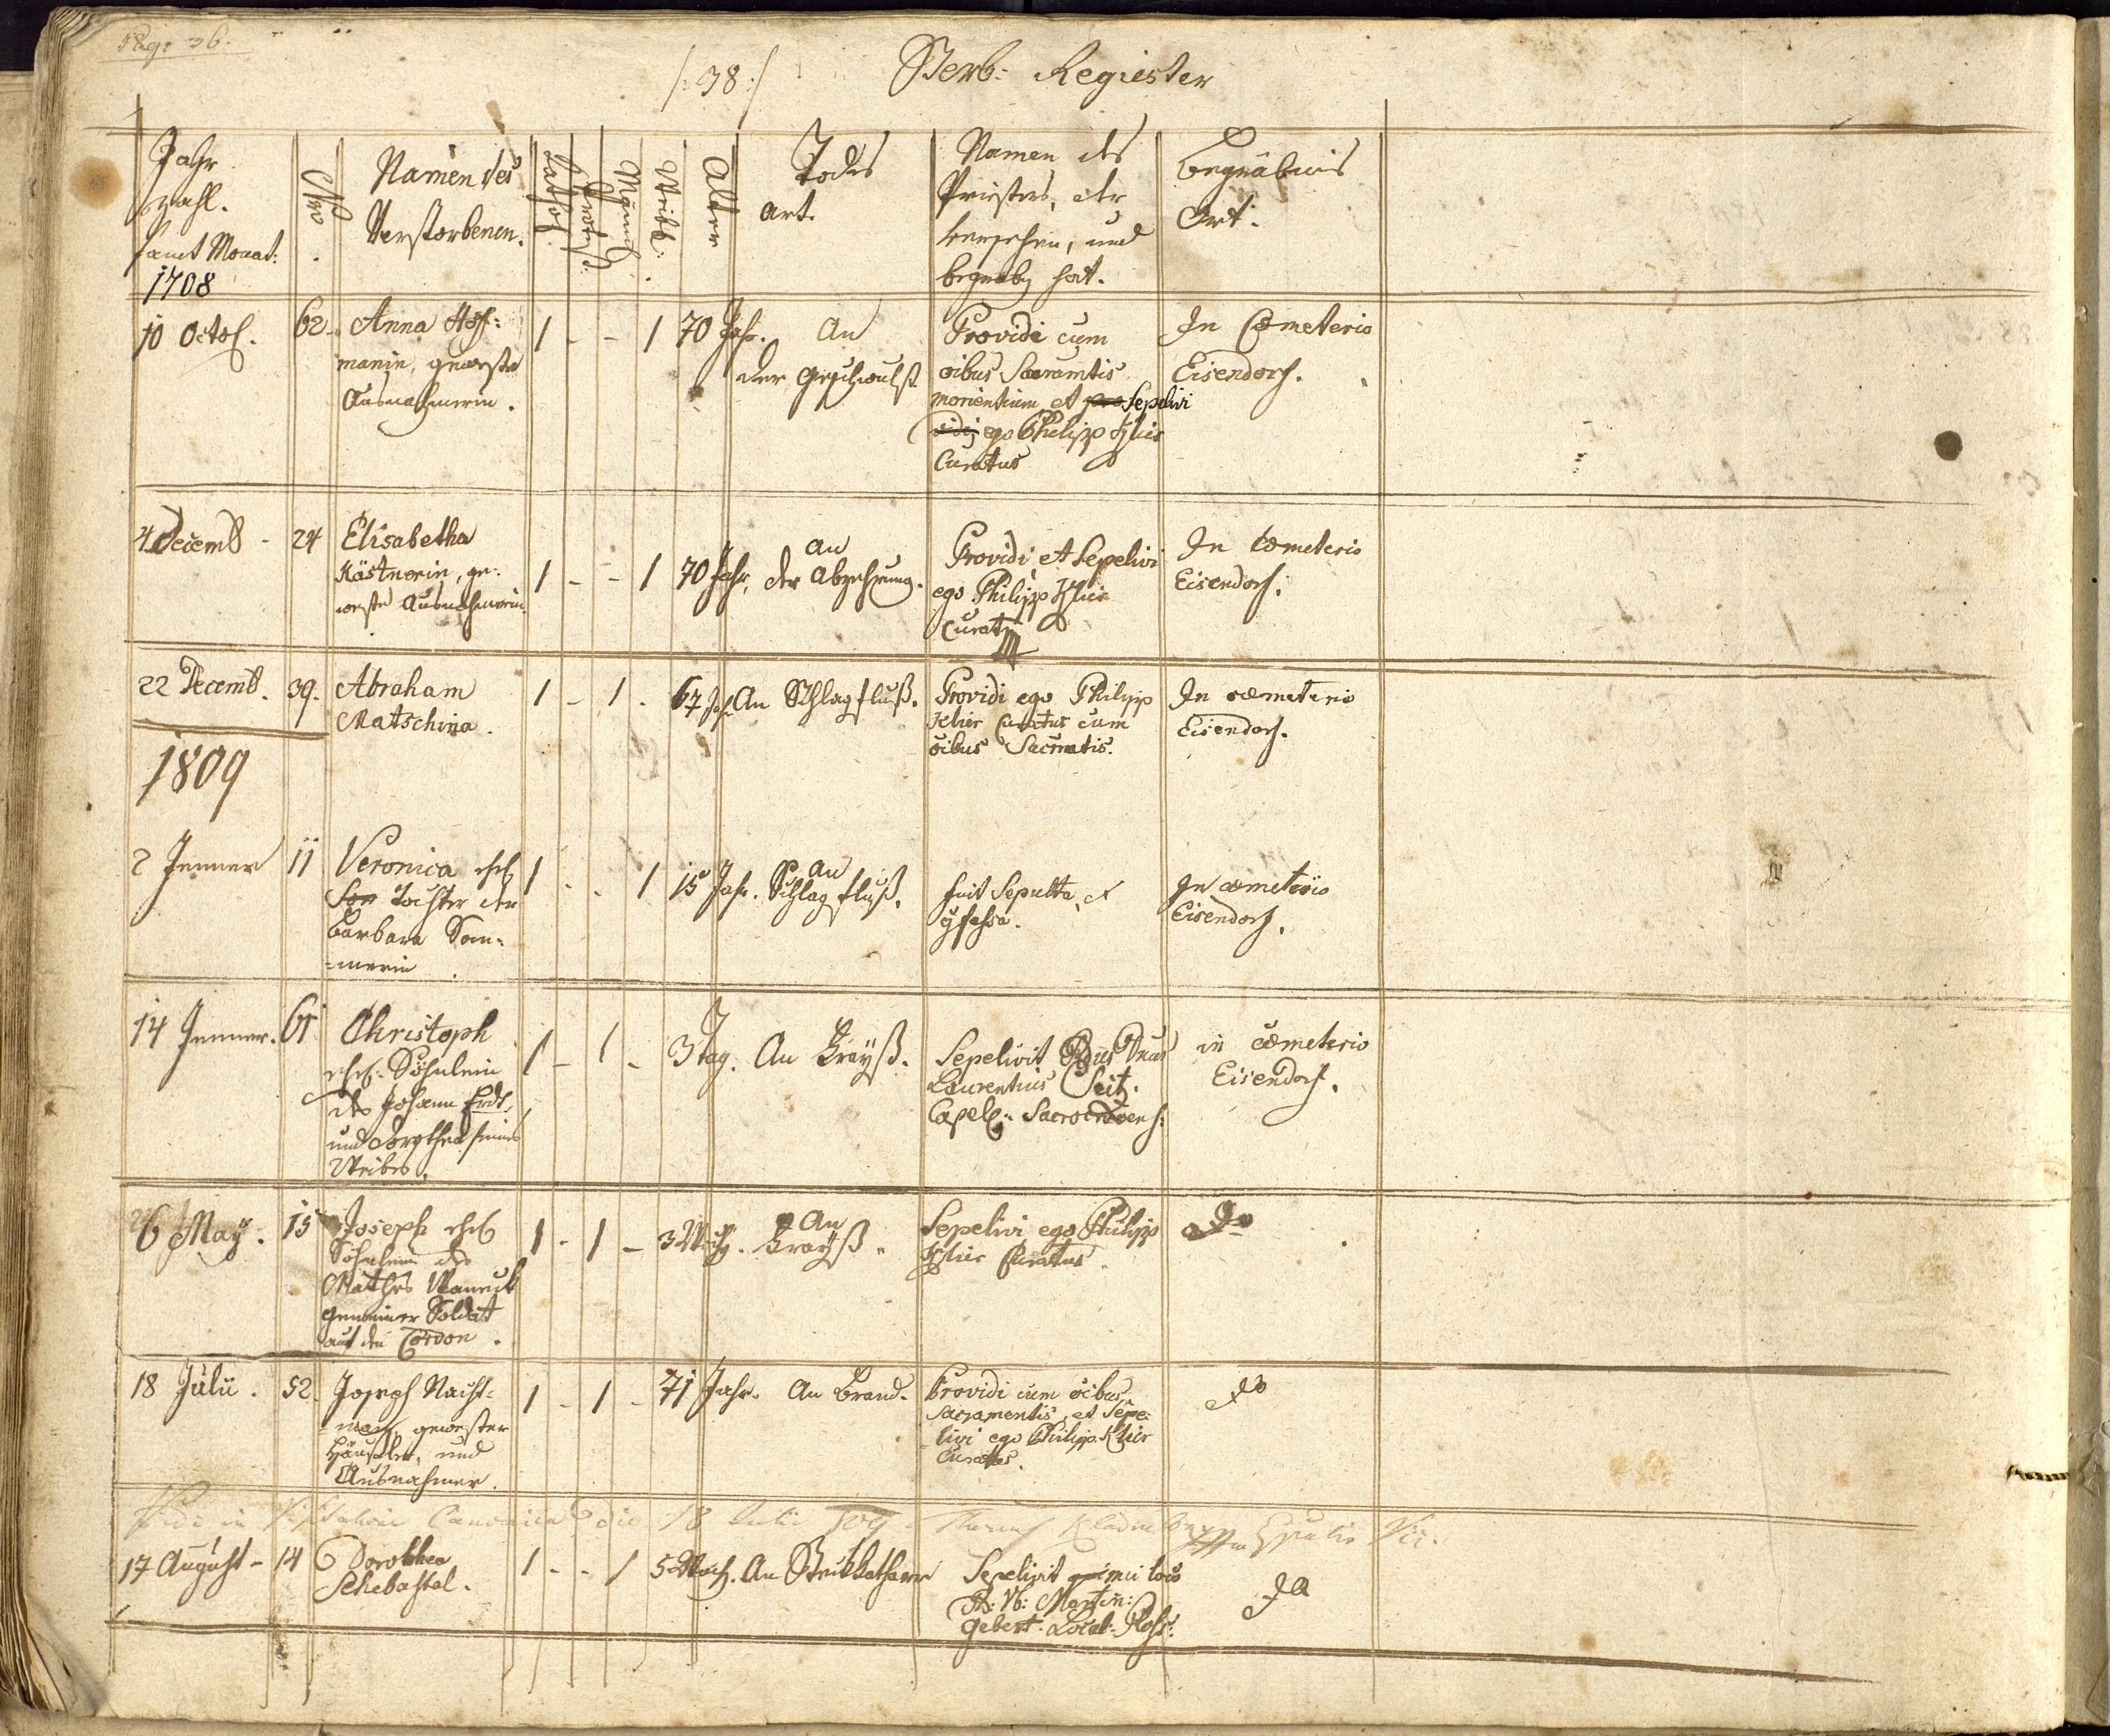 Pag: 36.
/: 38 :/ Sterb: Regiester
Jahr
zahl.
samt Monat:
1708
Nro
Namen des
Verstorbenen.
Cathol.
Protest:
Männl:
Weibl:
Alter
Todes
Art.
Namen des
Priesters, der
versehen, und
begrabē hat.
Begräbnis
Ort.
10 Octob. 62. Anna Hoff:
manin, geweste
Ausnahmerin.
1 - - 1 70 Jahr. An
der Geschwulst
Providi cum
oibus Sacramtis
morientium et Sepelivi
ego Philipp Klier
Curatus
In Cœmeterio
Eisendorf.
4 Decemb - 24 Elisabetha
Kästnerin, ge-
weste Ausnahmerin.
1 - - 1 70 Jahr, An
der Abzehrung.
Providi, et Sepelivi
ego Philipp Klier
Curatus
In Cœmeterio
Eisendorf.
22 Decemb. 39. Abraham
Matschina.
1 - 1 - 67 Jahr An Schlagfluß.
Providi ego Philipp
Klier Curatus cum
oibus Sacrmatis.
In cœmeterio
Eisendorf.
1809
2 Jenner 11 Veronica ehel
Tochter der
Barbara Som-
=merin
1 - - 1 15 Jahr. An
Schlagfluß.
fuit Sepulta, et
In cœmeterio
Eisendorf.
14 Jenner. 61 Christoph
ehel: Söhnlein
des Johann
und Dorothea seines
Weibes.
1 - 1 - 3 Tag. An Frayß.
Sepelivit Rdus Dnus
Laurentius Seitz.
Capell:
in cœmeterio
Eisendorf.
6 May. 15 Joseph ehel
Söhnlein des
Mathes
gemeiner Soldat
auf den Cordon.
1 - 1 - 3 Woch. An
Frayß.
Sepelivi ego Philipp
Klier Curatus.
do
18 Julii. 52. Joseph Nacht-
gewester
Häusler, und
Ausnahmer.
1 - 1 - 71 Jahr. An Brand.
Providi cum oibus
Sacramentis, et Sepe-
livi ego Philipp Klier
Curatus.
do
Vidi in Visitatione Canonica die 18 Julii 809
17 August - 14 Dorothea
Schebastal.
1 - - 1 5 Woch. An Steckkatharr
Sepelivit mei loco
Martin:
Gebert. Local.